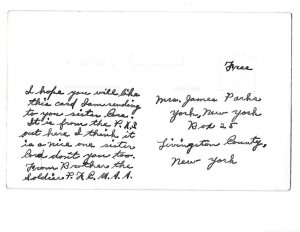 Free
I hope you will like
this card I am sending
to you sister Cora.
It is from the P. X,
out here I think it
is a nice one sister
Cora don't you too.
From Brother the
soldier P. F. C. U. S. A.
Mrs. James Parks
York, New York
Box 25
Livingston County,
New York